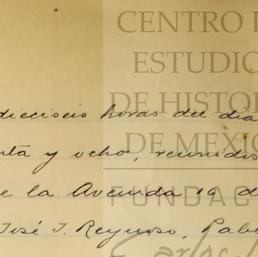 CENTRO
ESTUDIO
DE HISTOR
DE MEXIC
FUNDAC
Carlos
dieciseis horas del dia
ta y ocho, reunidos
e la Avenida 16 d
José J. Reynoso, Pabl